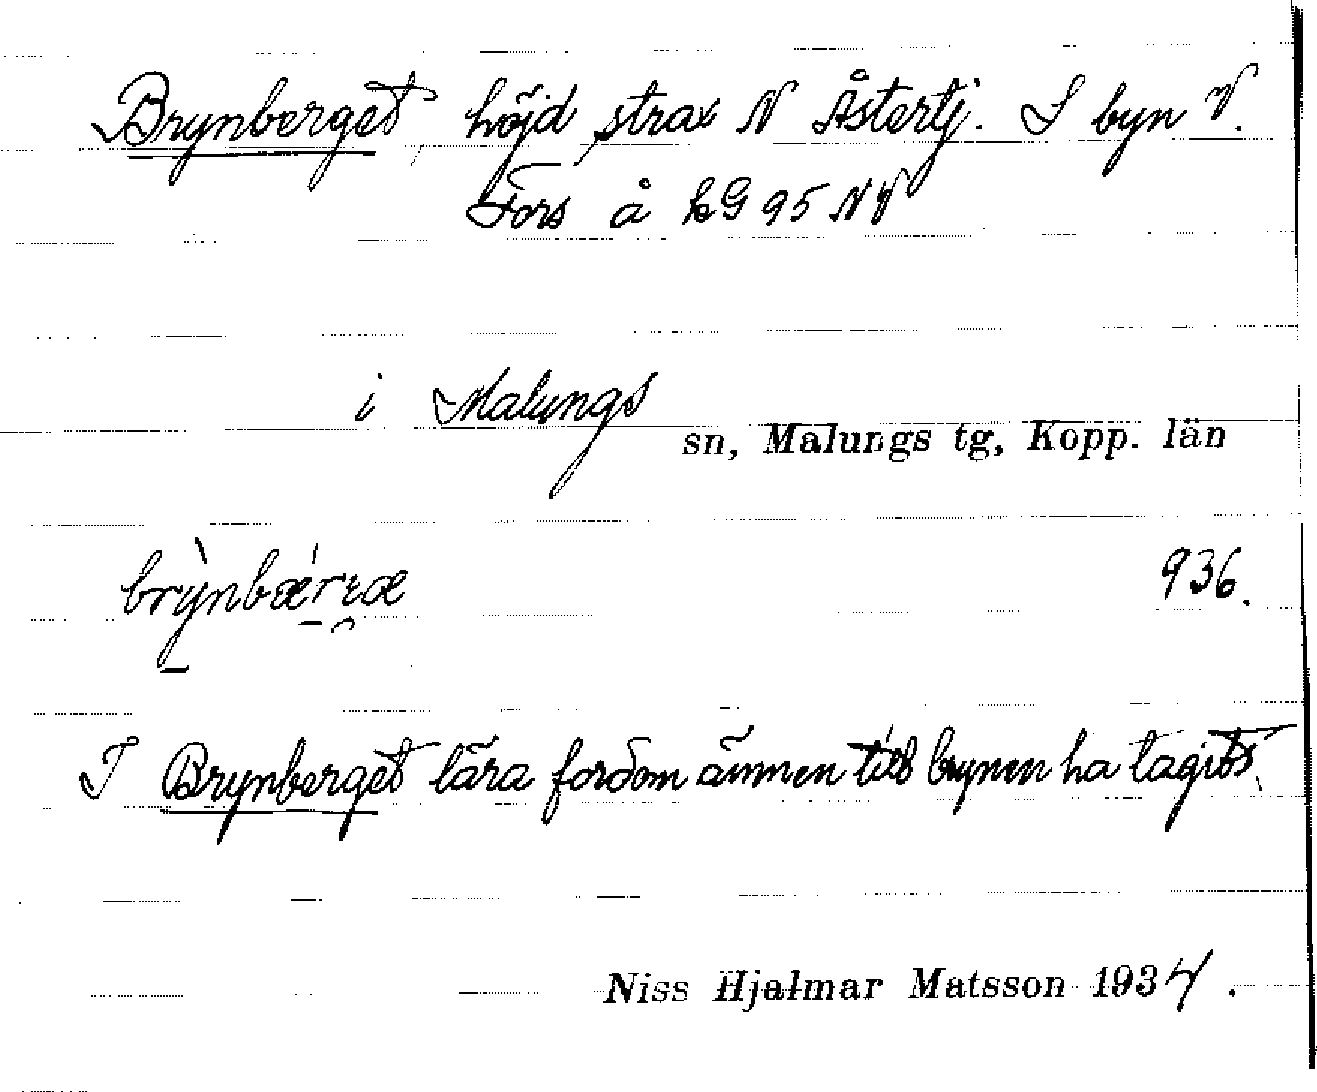 Brynberget höjd strax N Åstertj. I byn V.
Fors å kG 95 NV
i Malungs sn, Malungs tg, Kopp. län
brỳnbǽrɪæ 936.
I Brynberget lära fordom ämnen till brynen ha tagits.
Niss Hjalmar Matsson 1934.